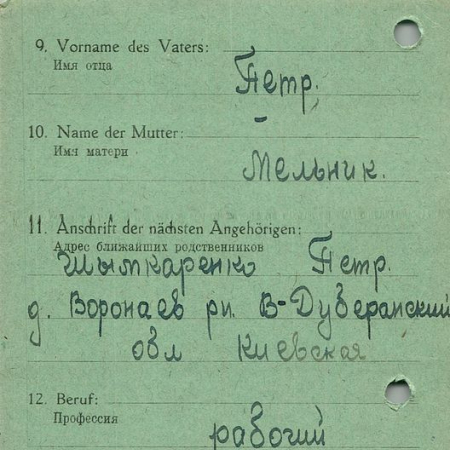 9. Vorname des Vaters:
Имя отца
Петр.
10. Name der Mutter:
Имя матери
Мельник.
11. Anschrift der nächsten Angehörigen:
Адрес ближайших родственников
Шымкаренко Петр.
д. Воронаев рн. В-Дуберанский
обл Киевская
12. Beruf:
Профессия
рабочий